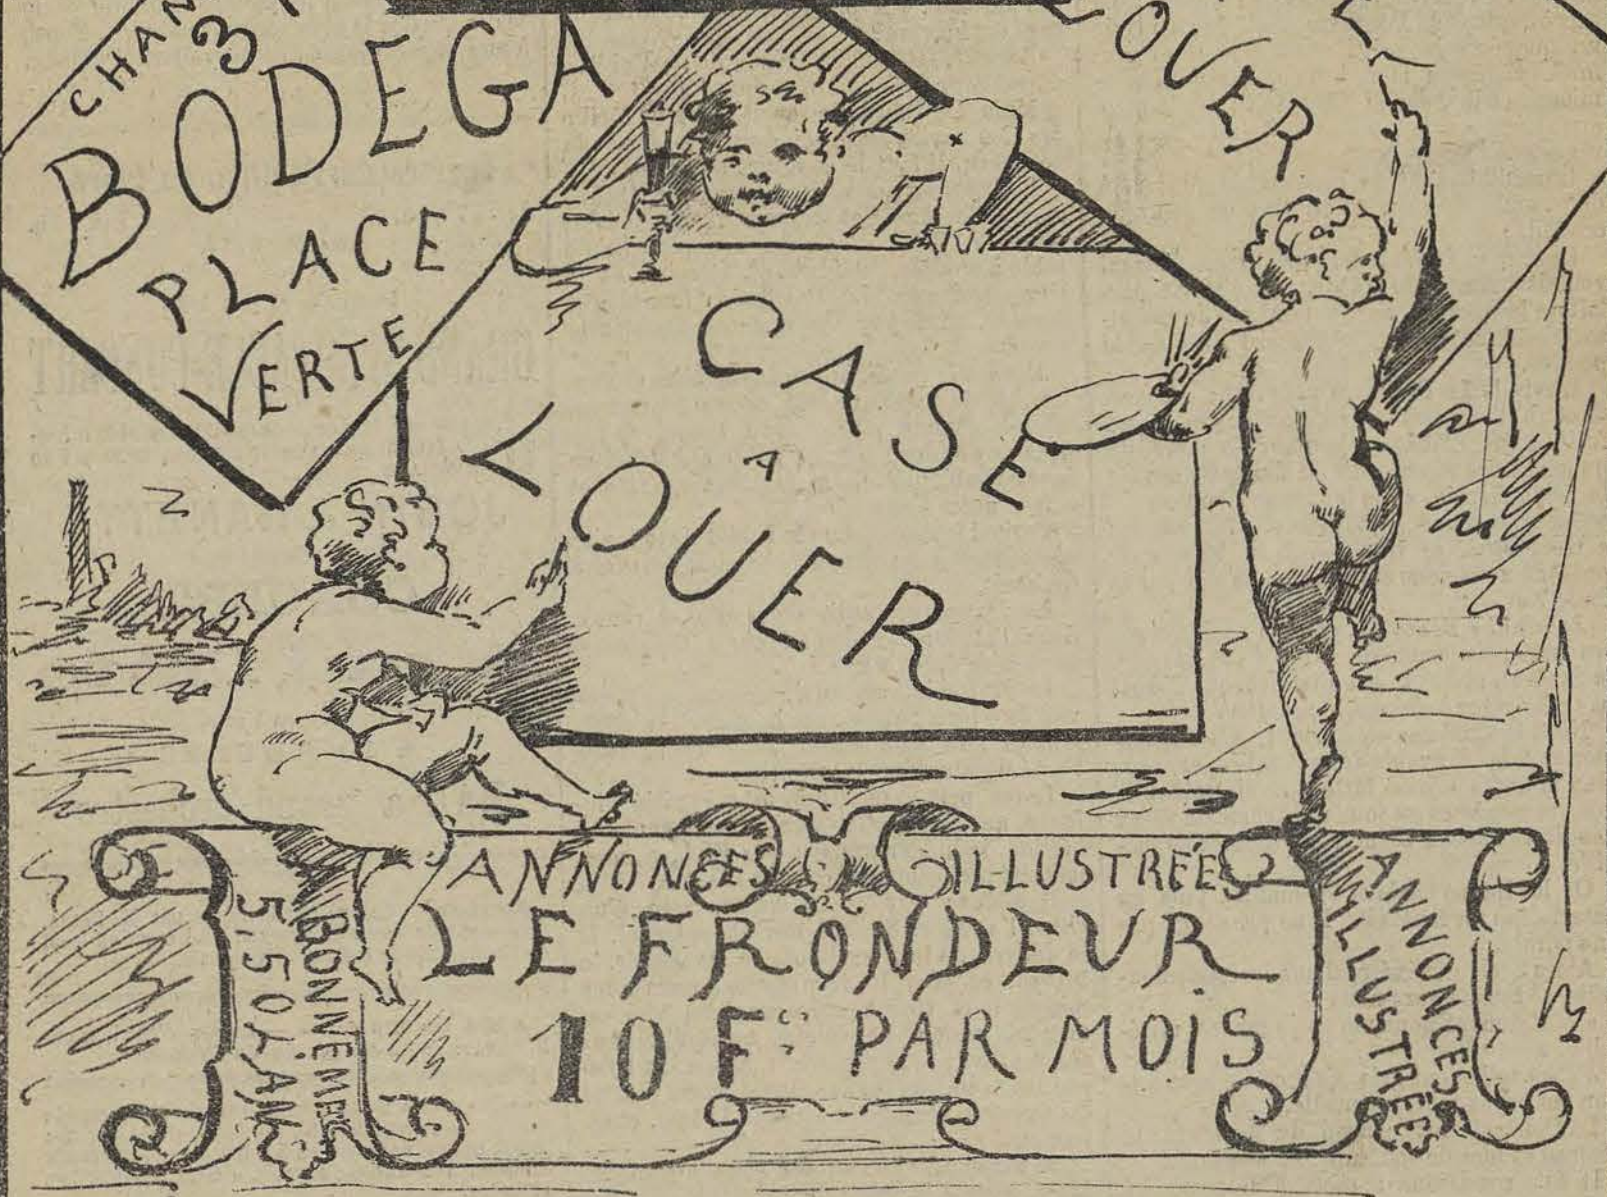 CHAN
3
BODEGA
PLACE
VERTE
LOUER
CASE
A
LOUER
ANNONCES ILLUSTRÉES
LE FRONDEUR
10 Fcs PAR MOIS
5,50 L'AN
ANNONCES
ILLUSTRÉES